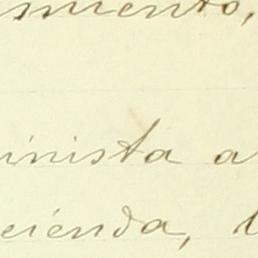 smiento,
inista a
cienda, l